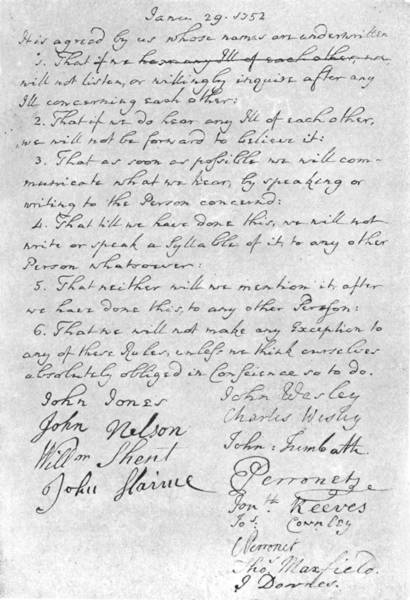 Janu. 29. 1752
It is agreed by us whose names are underwritten
1. That if we hear any Ill of each other, we
will not listen, or willingly inquire after any
Ill concerning each other:
2. That if we do hear any Ill of each other,
we will not be forward to believe it:
3. That as soon as possible we will com-
municate what we hear, by speaking or
writing to the Person concernd:
4. That till we have done this, we will not
write or speak a Syllable of it, to any other
Person whatsoever:
5. That neither will we mention it, after
we have done this, to any other Person:
6. That we will not make any Exception to
any of these Rules, unless we think ourselves
absolutely obliged in Conscience so to do.
John Jones
John Nelson
Willm Shent
John Haime
John Wesley
Charles Wesley
John: Trembath
E Perronet
Jonth. Reeves
Jos. Cownley
C Perronet
Thos. Maxfield.
J Downes.